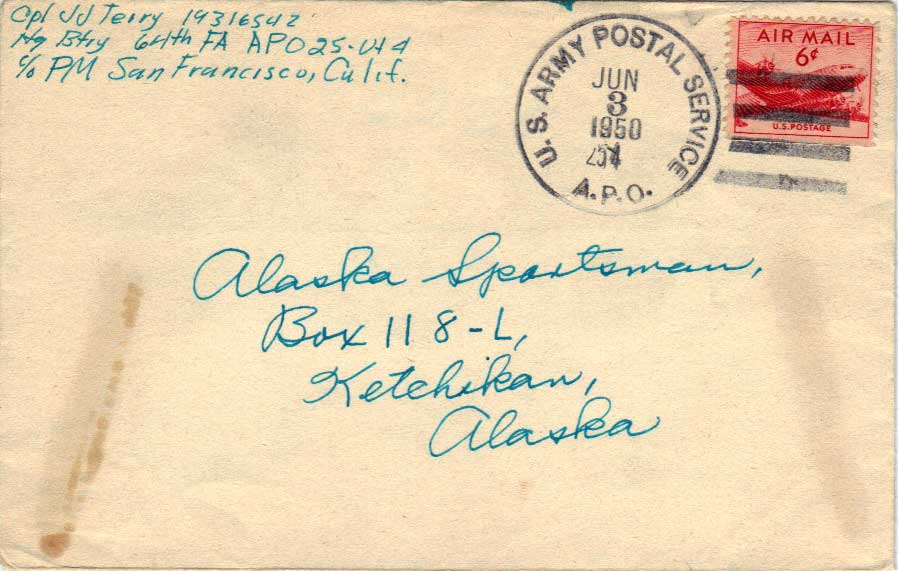 Cpl JJ Terry 19316542
Hq Btry 64th FA APO 25-Ut 4
c/o PM San Francisco, Calif.
U.S. ARMY POSTAL SERVICE
JUN
3
1950
A.P.O.
AIR MAIL
6¢
U.S. POSTAGE
Alaska Sportsman,
Box 118-L,
Ketchikan,
Alaska